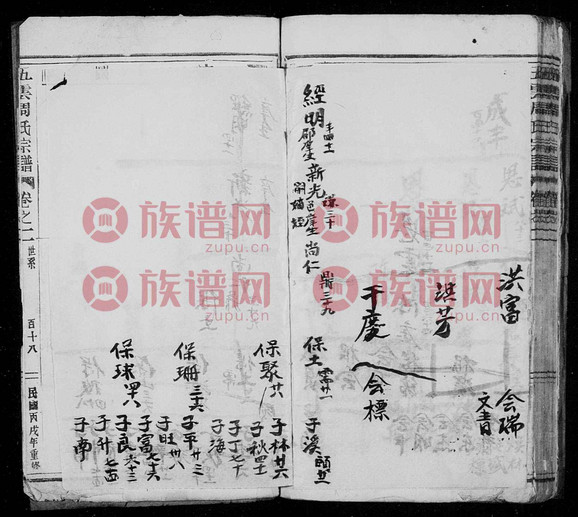 洪富
洪芳
于慶
会標
会瑞
文青
經明
郡庠生
新光
邑庠生
謀三十
尚仁
鼎三十九
保土
子溪
保聚 廿八
子林 廿六
子秋 四十
子丁 七十
子海
保珊 三十六
子平 廿三
子旺 卅八
保球 四十八
子富 七十六
子良 六十三
子升 七十五
子南
五雲周氏宗譜
卷之二
世系
百十八
民國丙戌年重修
族谱网
zupu.cn
族谱网
zupu.cn
族谱网
zupu.cn
族谱网
zupu.cn